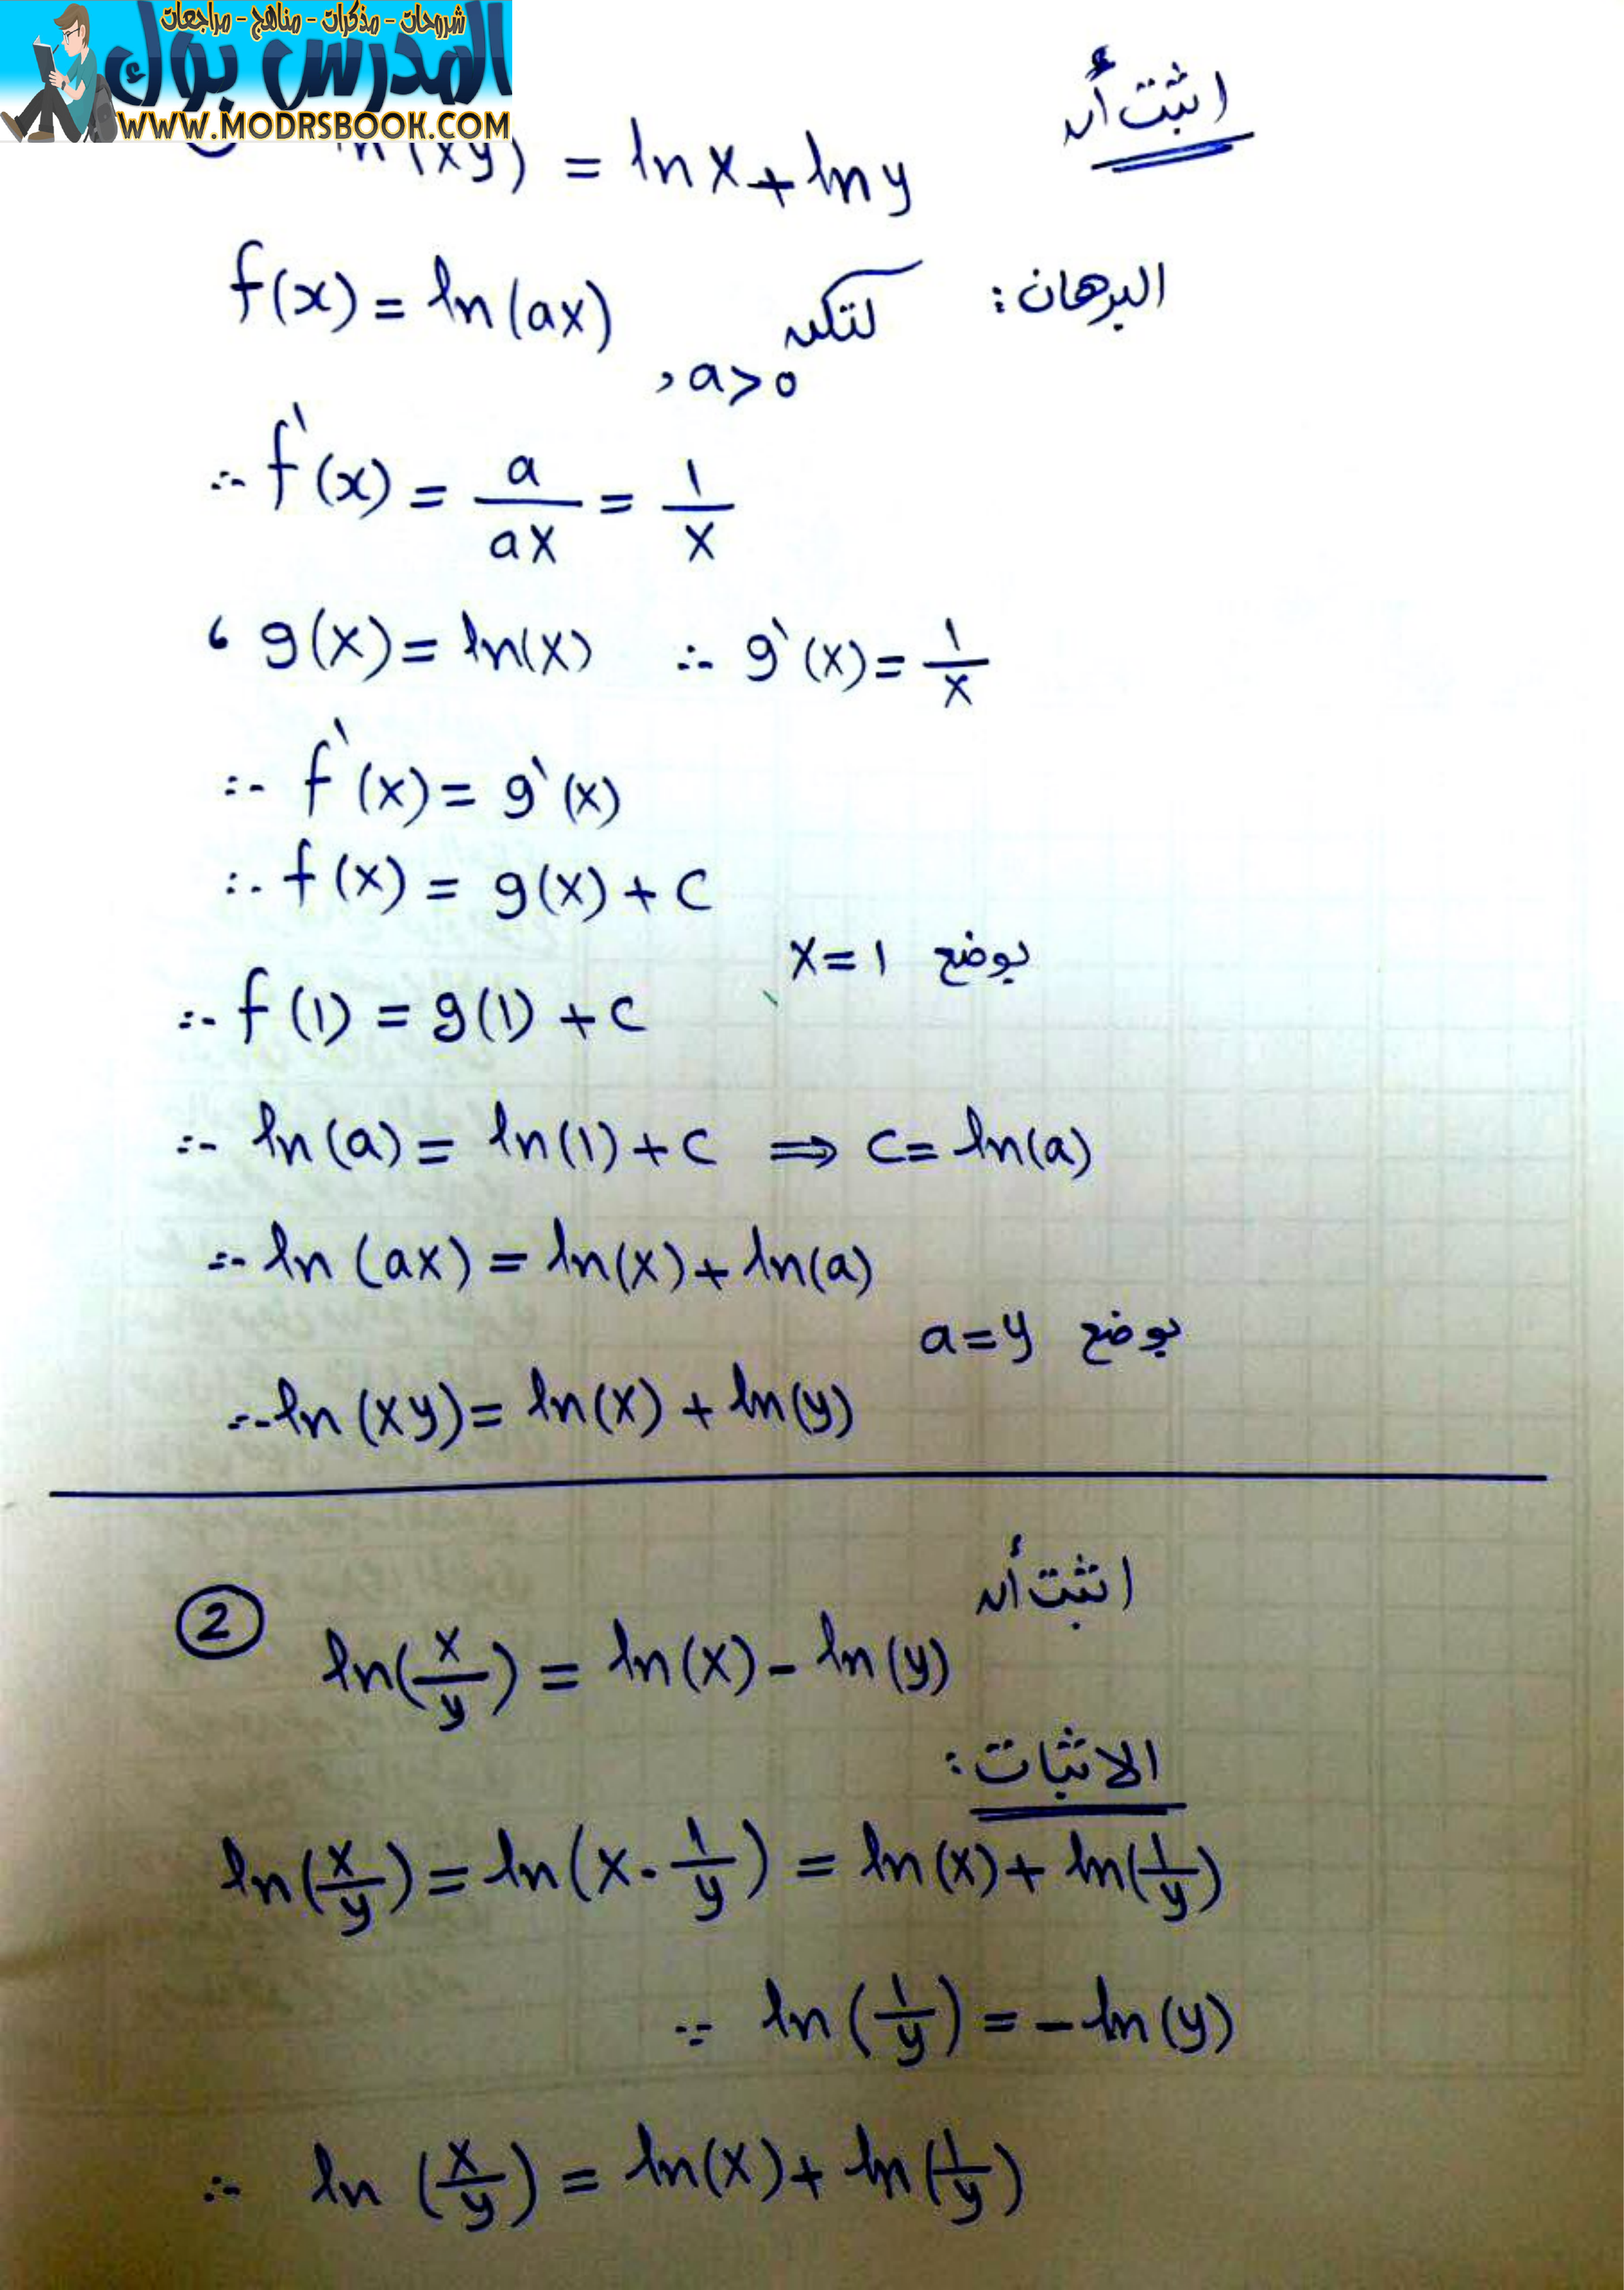 شروحات - مذكرات - مناهج - مراجعات
المدرس بوك
WWW.MODRSBOOK.COM
اثبت أن
ln(xy) = lnx + lny
البرهان: لتكن f(x) = ln(ax)
, a>0
∴ f`(x) = a/ax = 1/x
، g(x) = ln(x) ∴ g`(x) = 1/x
∴ f`(x) = g`(x)
∴ f(x) = g(x) + C
بوضع x=1
∴ f(1) = g(1) + C
∴ ln(a) = ln(1) + C ⇒ C = ln(a)
∴ ln(ax) = ln(x) + ln(a)
بوضع a=y
∴ ln(xy) = ln(x) + ln(y)
اثبت أن
② ln(x/y) = ln(x) - ln(y)
الاثبات:
ln(x/y) = ln(x . 1/y) = ln(x) + ln(1/y)
∵ ln(1/y) = -ln(y)
∴ ln(x/y) = ln(x) + ln(1/y)